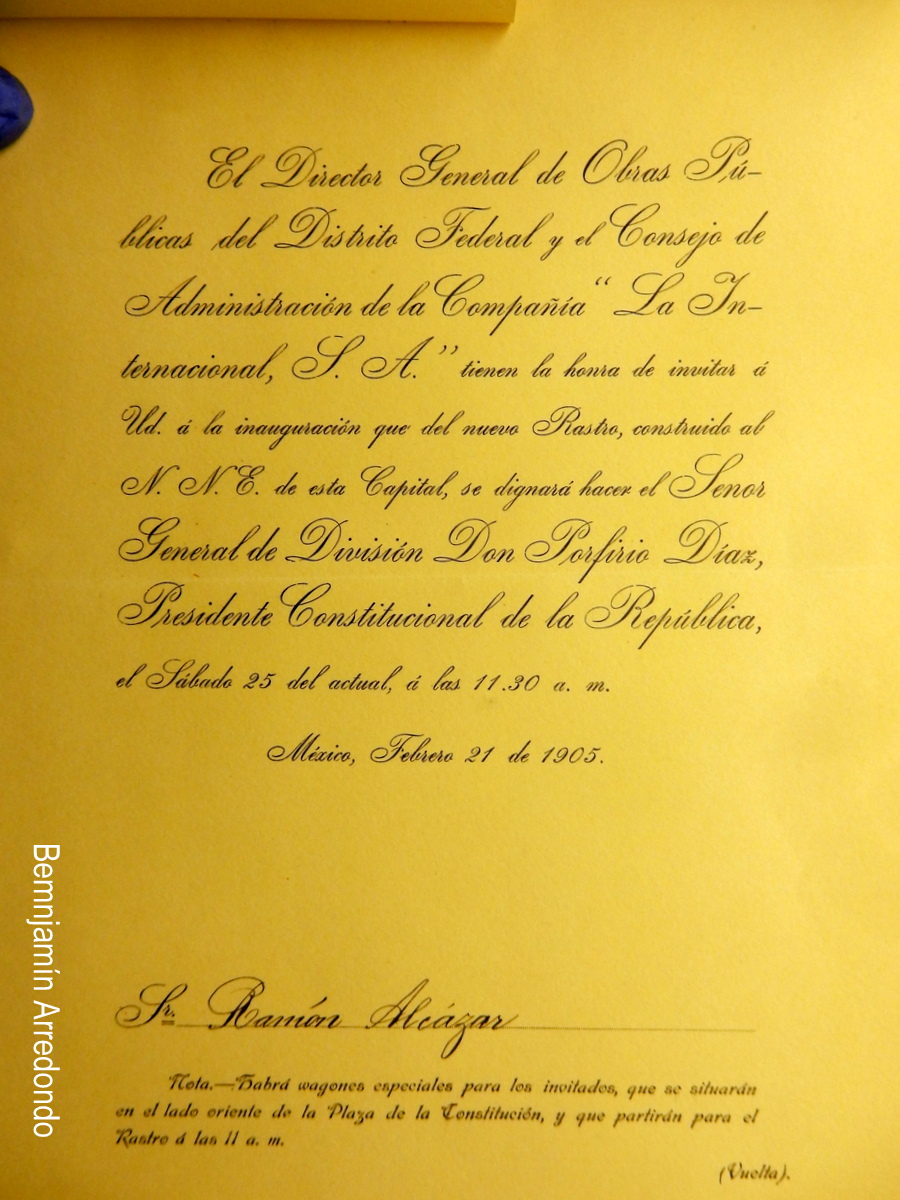 El Director General de Obras Pú-
blicas del Distrito Federal y el Consejo de
Administración de la Compañía “ La In-
ternacional, S. A.” tienen la honra de invitar á
Ud. á la inauguración que del nuevo Rastro, construido al
N. N. E. de esta Capital, se dignará hacer el Senor
General de División Don Porfirio Díaz,
Presidente Constitucional de la República,
el Sábado 25 del actual, á las 11.30 a. m.
México, Febrero 21 de 1905.
Sr. Ramón Alcázar
Nota.—Habrá wagones especiales para los invitados, que se situarán
en el lado oriente de la Plaza de la Constitución, y que partirán para el
Rastro á las 11 a. m.
(Vuelta).
Bemnjamín Arredondo